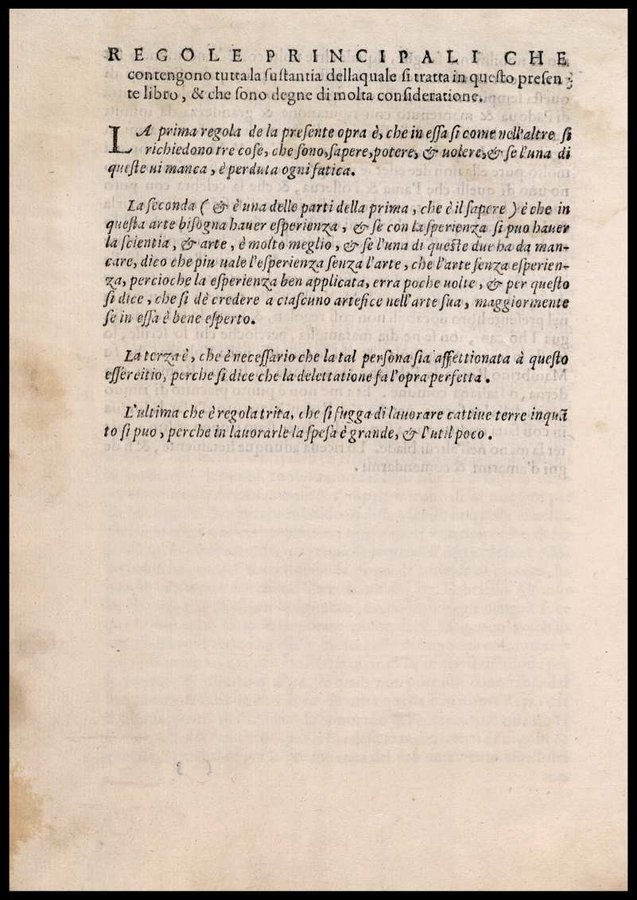 REGOLE PRINCIPALI CHE
contengono tutta la sustantia dellaquale si tratta in questo presen
te libro, & che sono degne di molta consideratione.
LA prima regola de la presente opra è, che in essa si come nell'altre si
richiedono tre cose, che sono, sapere, potere, & uolere, & se l'una di
queste ui manca, è perduta ogni fatica.
La seconda (& è una delle parti della prima, che è il sapere) é che in
questa arte bisogna hauer esperienza, & se con la sperienza si puo hauer
la scientia, & arte, è molto meglio, & se l'una di queste due ha da man-
care, dico che piu uale l'esperienza senza l'arte, che l'arte senza esperien-
za, percioche la esperienza ben applicata, erra poche uolte, & per questo
si dice, che si dè credere a ciascuno artefice nell'arte sua, maggiormente
se in essa è bene esperto.
La terza è, che è necessario che la tal persona sia affettionata à questo
essercitio, perche si dice che la delettatione fa l'opra perfetta.
L'ultima che è regola trita, che si fugga di lauorare cattiue terre inquā
to si puo, perche in lauorarle la spesa è grande, & l'util poco.